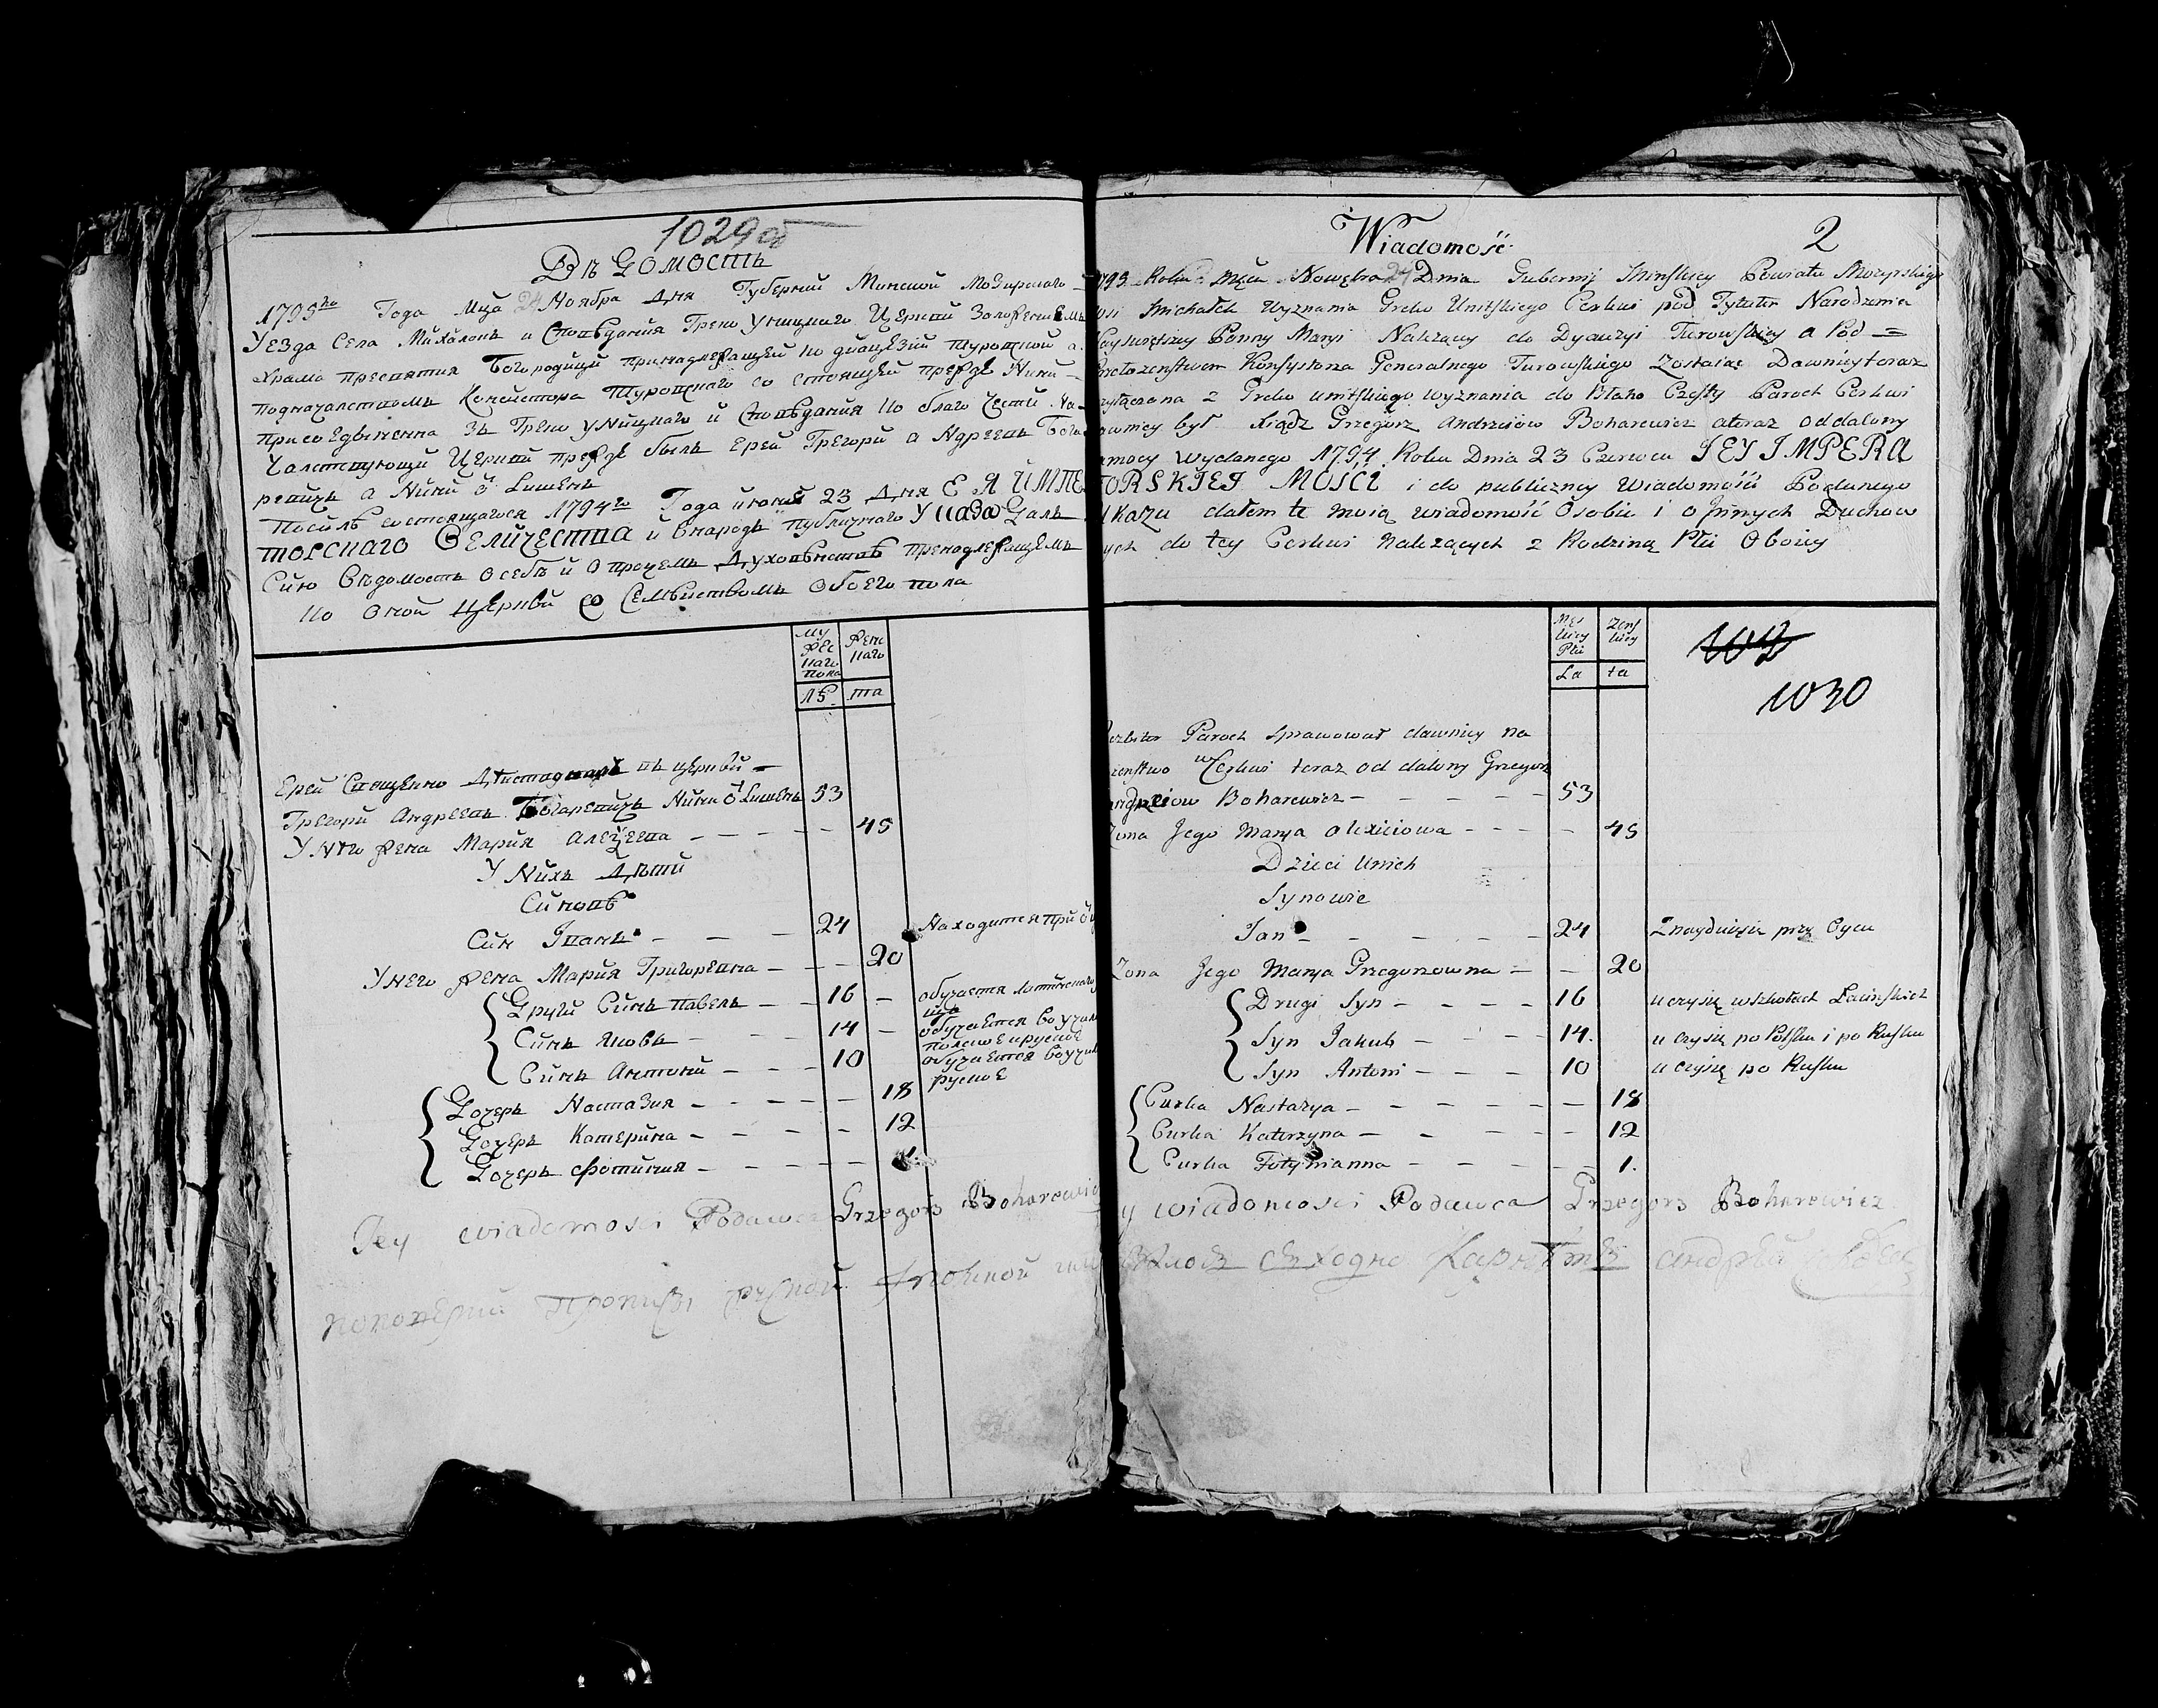 1029об
Вѣдомость
1795го Года Мца 24 Ноября Дня Губерний Минской Мозирского
Уезда Села Михалокъ и Споведания Греко Уницкаго Церкви Заложениемъ
Храма пресвятия Богородици принадлежащей ко диацезии Туровской а
подначалством Консистора Туровскаго со стоящей прежде Нини
присоедыненна зъ Греко Уницкаго и Споведания Ко благо Чести На
Чалствующи Церкви прежде былъ Ерей Грегори Андреевъ Бога
ревичъ а Нини ѿ Лишенъ
посилѣ состоящагося 1794го Года июния 23 Дня ЕЯ ИМПЕ
торскаго Величества и внародъ публичнаго Указа Далъ
Сию Вѣдомость о себѣ и о прочемъ Духовѣнствѣ пренадлежащемъ
Ко оной Церкви со Семѣйствомъ обоего пола
Му жес каго пола
Жен каго
лѣ
та
Ерей Священно въ церкви
Грегори Андреевъ Богаревичъ Нини ѿ Лишенъ 53
У Него жена Мария Алецеева 45
У Нихъ Дѣти
Синовѣ
Син Иванъ 24 Находится при
У него жена Мария Григоревна 20
Други Синъ павелъ 16 обучается латинскаго
Синъ Яковъ 14 обучается во училь
полское и руское
Синъ Антони 10 обучается во учил
руское
Дочерь Настазия 18
Дочерь Катерина 12
Дочерь Фотиния 1
Tey wiadomosci Podawca Grzegorz Boharewicz
Wiadomość 2
1795 Roku Mca Nowębra 24 Dnia Gubernij Minskiey Powiatu Mozyrskiego
wsi Michałek Wyznania Greko Unitskiego Cerkwi pod Tytułem Narodzenia
Nayświętszey Panny Maryi Nalezący do Dyacezyi Turowskiey a Pod =
przełozenstwem Konsystorza Generalnego Turowskiego Zostaiąc Dawniey teraz
zyłączona z Greko unitskiego wyznania do Błaho Czesty Paroch Cerkwi
owniey był Xiądz Grzegorz Andrzeiow Boharewicz a teraz oddalony
mocy Wydanego 1794 Roku Dnia 23 Czerwca IEY IMPERA
TORSKIEI MOŚCI i do publiczney Wiadomość Podanego
Ukazu dałem tę moią wiadomość o Sobie i o Innych Duchow
ych do tey Cerkwi Nalezących z Rodziną Płci Oboiey
Męs kiey Płci
Zens kiey
La
ta
1030
Paroch sprawował dawniey na
zenstwo w Cerkwi teraz oddalony Grzegorz
andrzeiow Boharewicz 53
Zona Jego Marya Olexieiowa 45
Dzieci Unich
Synowie
Jan 24 Znayduiesie przy Oycu
Zona Jego Marya Grzegorzowna 20
Drugi Syn 16 uczysię w szkołach Łacinskich
Syn Jakub 14. uczysię po Polsku i po Rusku
Syn Antoni 10 uczysię po Rusku
Curka Nastazya 18
Curka Katerzyna 12
Curka Fotynianna 1.
y wiadomosci Podawca Grzegorz Boharewicz